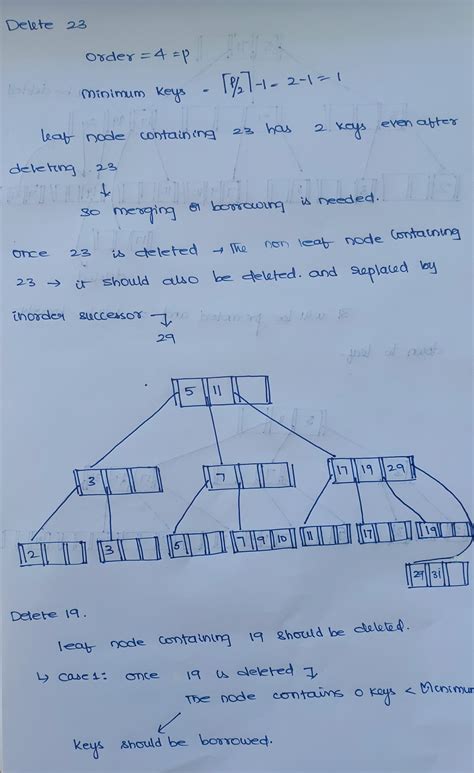 Delete 23
Order = 4 = P
Minimum Keys = ⌈P/2⌉-1 = 2-1 = 1
leaf node containing 23 has 2 keys even after
deleting 23
↓
so merging or borrowing is needed.
once 23 is deleted → The non leaf node containing
23 → it should also be deleted. and replaced by
inorder successor →
29
5 11
3
7
17 19 29
2
3
5
7 9 10
11
17
19
29 31
Delete 19.
leaf node containing 19 should be deleted.
↳ case1: once 19 is deleted
The node contains 0 keys < Minimum
keys should be borrowed.